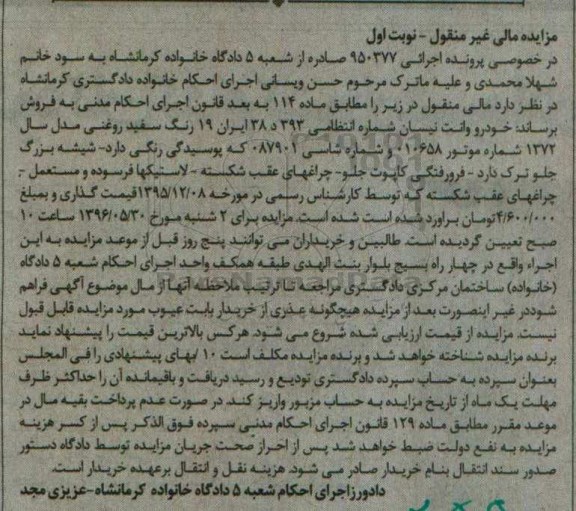 مزایده مالی غیر منقول - نوبت اول
در خصوصی پرونده اجرائی ۹۵۰۳۷۷ صادره از شعبه ۵ دادگاه خانواده کرمانشاه به سود خانم
شهلا محمدی و علیه ماترک مرحوم حسن ویسانی اجرای احکام خانواده دادگستری کرمانشاه
در نظر دارد مالی منقول در زیر را مطابق ماده ۱۱۴ به بعد قانون اجرای احکام مدنی به فروش
برساند: خودرو وانت نیسان شماره انتظامی ۳۹۳ د ۳۸ ایران ۱۹ رنگ سفید روغنی مدل سال
۱۳۷۲ شماره موتور ۱۰۶۵۸ شماره شاسی ۰۸۷۹۰۱ که پوسیدگی رنگی دارد- شیشه بزرگ
جلو ترک دارد - فرورفتگی کاپوت جلو- چراغهای عقب شکسته - لاستیکها فرسوده و مستعمل -
چراغهای عقب شکسته که توسط کارشناس رسمی در مورخه ۱۳۹۵/۱۲/۰۸ قیمت گذاری و بمبلغ
۴/۶۰۰/۰۰۰تومان براورد شده است شده است. مزایده برای ۲ شنبه مورخ ۱۳۹۶/۰۵/۳۰ ساعت ۱۰
صبح تعیین گردیده است. طالبین و خریداران می توانند پنج روز قبل از موعد مزایده به این
اجراء واقع در چهار راه بسیج بلوار بنت الهدی طبقه همکف واحد اجرای احکام شعبه ۵ دادگاه
(خانواده) ساختمان مرکزی دادگستری مراجعه تا ترتیب ملاحظه آنها از مال موضوع آگهی فراهم
شود در غیر اینصورت بعد از مزایده هیچگونه عذری از خریدار بابت عیوب مورد مزایده قابل قبول
نیست. مزایده از قیمت ارزیابی شده شروع می شود. هرکس بالاترین قیمت را پیشنهاد نماید
برنده مزایده شناخته خواهد شد و برنده مزایده مکلف است ۱۰ ٪بهای پیشنهادی را فی المجلس
بعنوان سپرده به حساب سپرده دادگستری تودیع و رسید دریافت و باقیمانده آن را حداکثر ظرف
مهلت یک ماه از تاریخ مزایده به حساب مزبور واریز کند. در صورت عدم پرداخت بقیه مال در
موعد مقرر مطابق ماده ۱۲۹ قانون اجرای احکام مدنی سپرده فوق الذکر پس از کسر هزینه
مزایده به نفع دولت ضبط خواهد شد پس از احراز صحت جریان مزایده توسط دادگاه دستور
صدور سند انتقال بنام خریدار صادر می شود. هزینه نقل و انتقال برعهده خریدار است.
دادورز اجرای احکام شعبه ۵ دادگاه خانواده کرمانشاه-عزیزی مجد